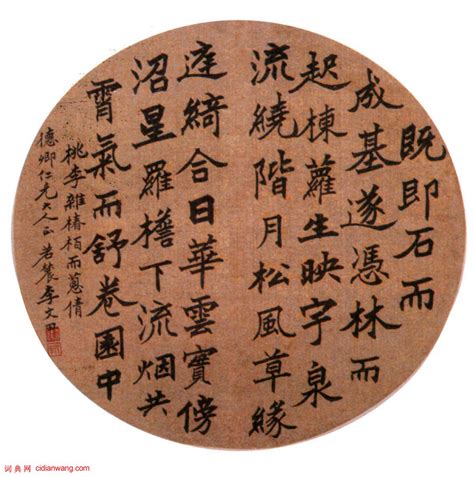 既即石而
成基遂憑林而
起棟蘿生映宇泉
流繞階月松風草緣
庭綺合日華雲實傍
沼星羅檐下流烟共
霄氣而舒卷園中
桃李雜椿柏而蔥倩
德卿仁兄大人正 若農李文田
词典网 cidianwang.com